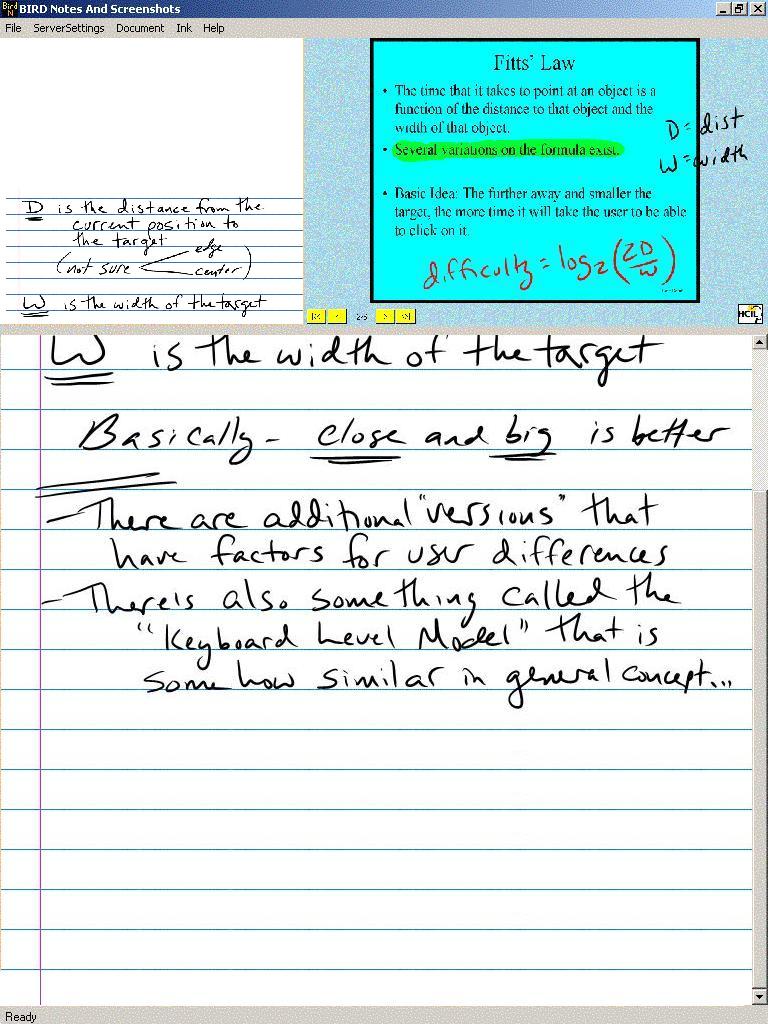 BIRD Notes And Screenshots
File ServerSettings Document Ink Help
D is the distance from the
current position to
the target
(not sure edge
center)
W is the width of the target
Fitts' Law
• The time that it takes to point at an object is a
function of the distance to that object and the
width of that object.
• Several variations on the formula exist.
• Basic Idea: The further away and smaller the
target, the more time it will take the user to be able
to click on it.
difficulty = log2(2D/W)
D = dist
W = width
2/5
HCIL
W is the width of the target
Basically - close and big is better
- There are additional "versions" that
have factors for user differences
- There's also something called the
"Keyboard Level Model" that is
somehow similar in general concept...
Ready